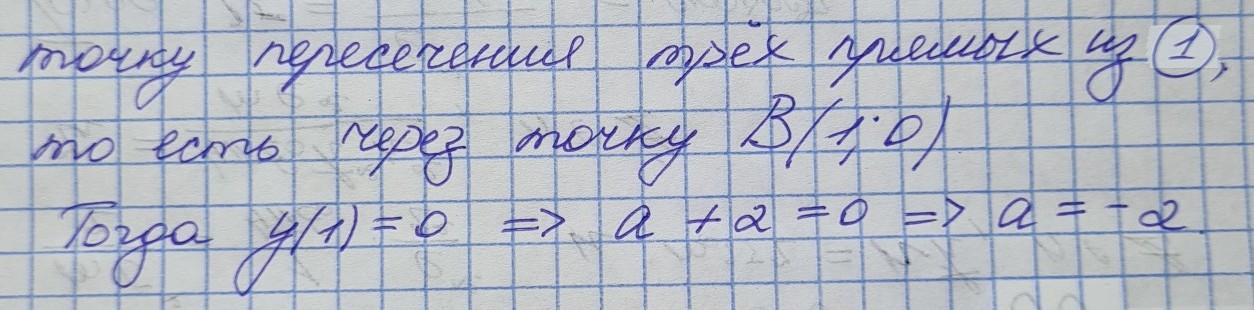 точку пересечения трёх прямых из ①,
то есть через точку B(1;0)
Тогда y(1)=0 => a+2=0 => a=-2